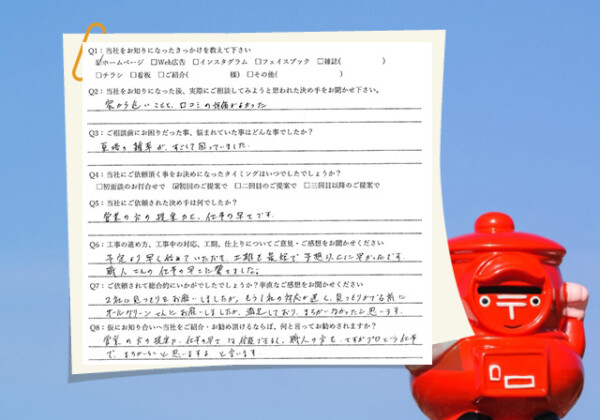 Q1：当社をお知りになったきっかけを教えて下さい
☑ホームページ　□Web広告　□インスタグラム　□フェイスブック　□雑誌(　　　　　)
□チラシ　□看板　□ご紹介(　　　　　様)　□その他(　　　　　)
Q2：当社をお知りになった後、実際にご相談してみようと思われた決め手をお聞かせ下さい。
家から近いことと、口コミの評価が良かった
Q3：ご相談前にお困りだった事、悩まれていた事はどんな事でしたか？
更地の雑草が、すごくて困っていました。
Q4：当社にご依頼頂く事をお決めになったタイミングはいつでしたでしょうか？
□初面談のお打合せで　☑初回のご提案で　□二回目のご提案で　□三回目以降のご提案で
Q5：当社にご依頼された決め手は何でしたか？
営業の方の提案力と、仕事の早さです。
Q6：工事の進め方、工事中の対応、工期、仕上りについてご意見・ご感想をお聞かせください
予定より早く始めていただき、工期も最短で予想以上に早かったです。
職人さんの仕事の早さに驚きました。
Q7：ご依頼されて総合的にいかがでしたでしょうか？率直なご感想をお聞かせください
2社に見つもりをお願いしましたが、もう1社の対応が遅く、見つもりがでる前に
オールグリーンさんにお願いしましたが、満足しており、まちがいなかったと思います。
Q8：仮にお知り合いへ当社をご紹介・お勧め頂けるならば、何と言ってお勧めされますか？
営業の方の提案力、仕事の早さは信頼できるし、職人の方も、さすがプロという仕事
で、まちがいないと思いますよ と言います。